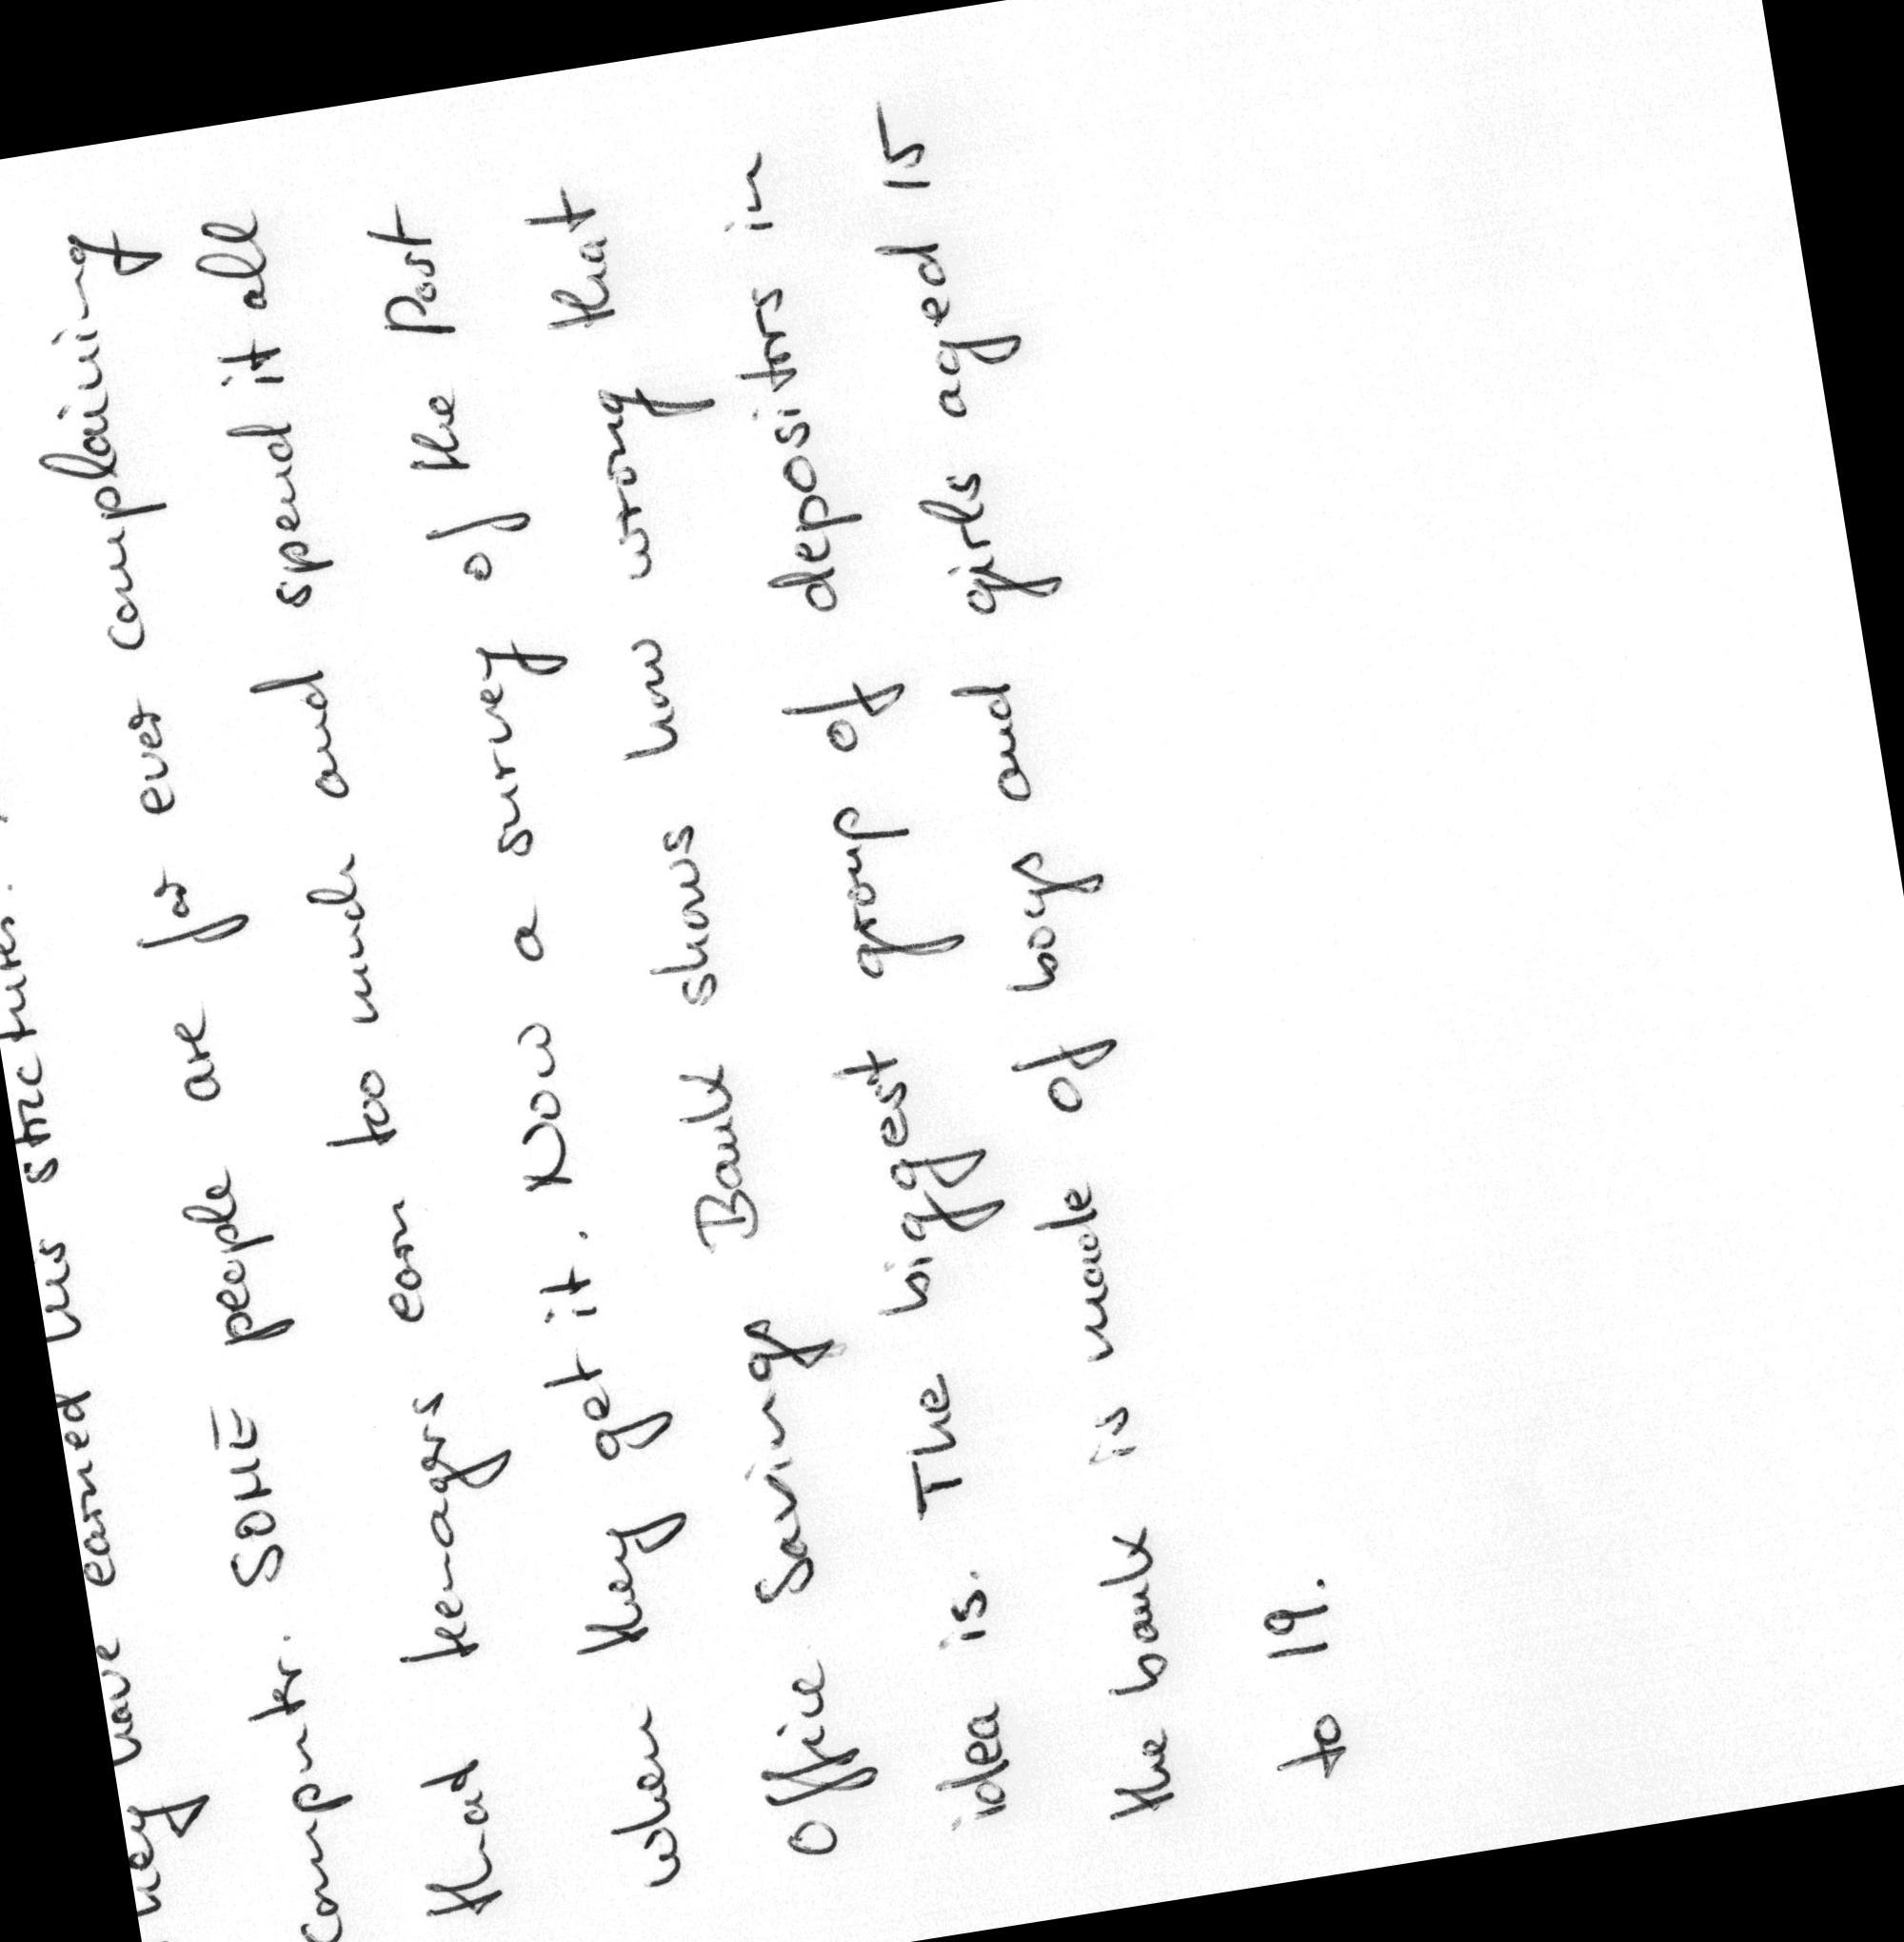 they have earned his strictures.
computer. SOME people are for ever complaining
that teenagers earn too much and spend it all
when they get it. Now a survey of the Post
Office Savings Bank shows how wrong that
idea is. The biggest group of depositors in
the bank is made of boys and girls aged 15
to 19.